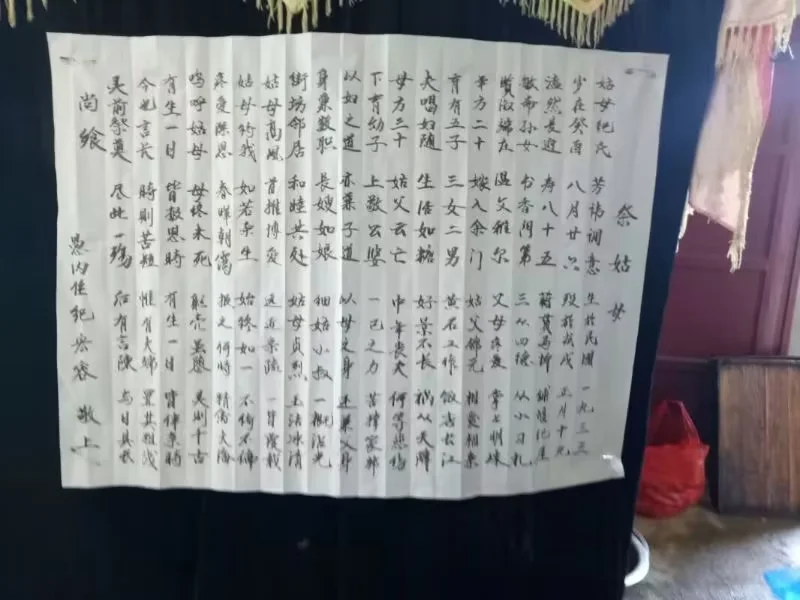 祭姑母
姑母纪氏 芳讳调意 生於民国 一九三三
少在癸酉 八月廿六 殁於戊戌 正月十九
溘然长逝 寿八十五
书香门第 三从四德 从小习礼
贤淑端庄 温文雅尔 父母疼爱 掌上明珠
年方二十 嫁入余门 姑父锦元 相爱相亲
育有五子 三女二男 黄石工作
夫唱妇随 生活如糖 好景不长 祸从天降
母方三十 姑父云亡 中年丧夫 何等悲伤
下育幼子 上敬公婆 一己之力 苦撑家邦
以妇之道 亦兼子道 以母之身 还兼父身
身兼数职 长嫂如娘 细姑小叔 一概沾光
街坊邻居 和睦共处 姑母贞烈 玉洁冰清
姑母高风 首推博爱 远近亲疏
姑母待我 如若亲生 始终如一 不偏不倚
疼爱深恩 春晖朝霭 报之何时 情倚大海
呜呼姑母 母终未死 躯壳虽殒 灵则千古
有生一日 皆报恩时 有生一日 皆伸哀时
今也言长 時則苦短 惟有大师
灵前祭奠 尽此一殇 后有言陳 与日具长
尚飨
愚内侄纪宏容 敬上